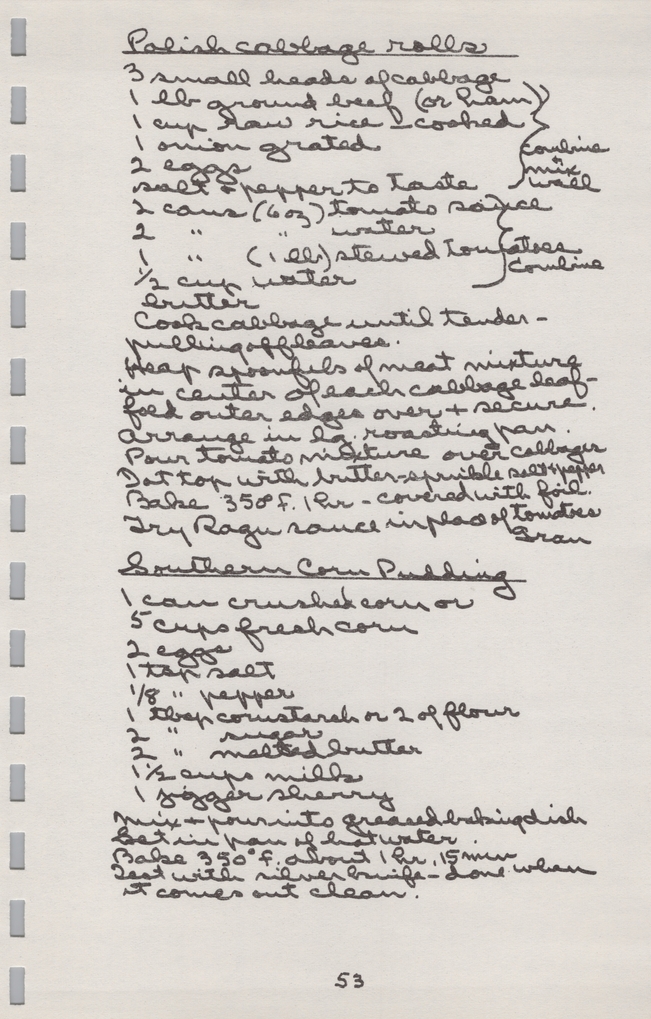 Polish cabbage rolls
3 small heads of cabbage
1 lb ground beef (or ham)
1 cup raw rice - cooked
1 onion grated
2 eggs
salt + pepper to taste
combine + mix well
2 cans (6 oz) tomato sauce
2 " " water
1 " (1 lb) stewed tomatoes
1/2 cup water
combine
butter
Cook cabbage until tender -
pulling off leaves.
Heap spoonfuls of meat mixture
in center of each cabbage leaf -
fold outer edges over + secure.
Arrange in lg. roasting pan.
Pour tomato mixture over cabbages
Dot top with butter - sprinkle salt + pepper
Bake 350° F. 1 hr - covered with foil.
Try Ragu sauce in place of tomatoes
Gran
Southern Corn Pudding
1 can crushed corn or
5 cups fresh corn
2 eggs
1 tsp salt
1/8 " pepper
1 tbsp cornstarch or 2 of flour
2 " sugar
2 " melted butter
1 1/2 cups milk
1 jigger sherry
Mix + pour into greased baking dish
Set in pan of hot water.
Bake 350° F. about 1 hr. 15 min
Test with silver knife - done when
it comes out clean.
53